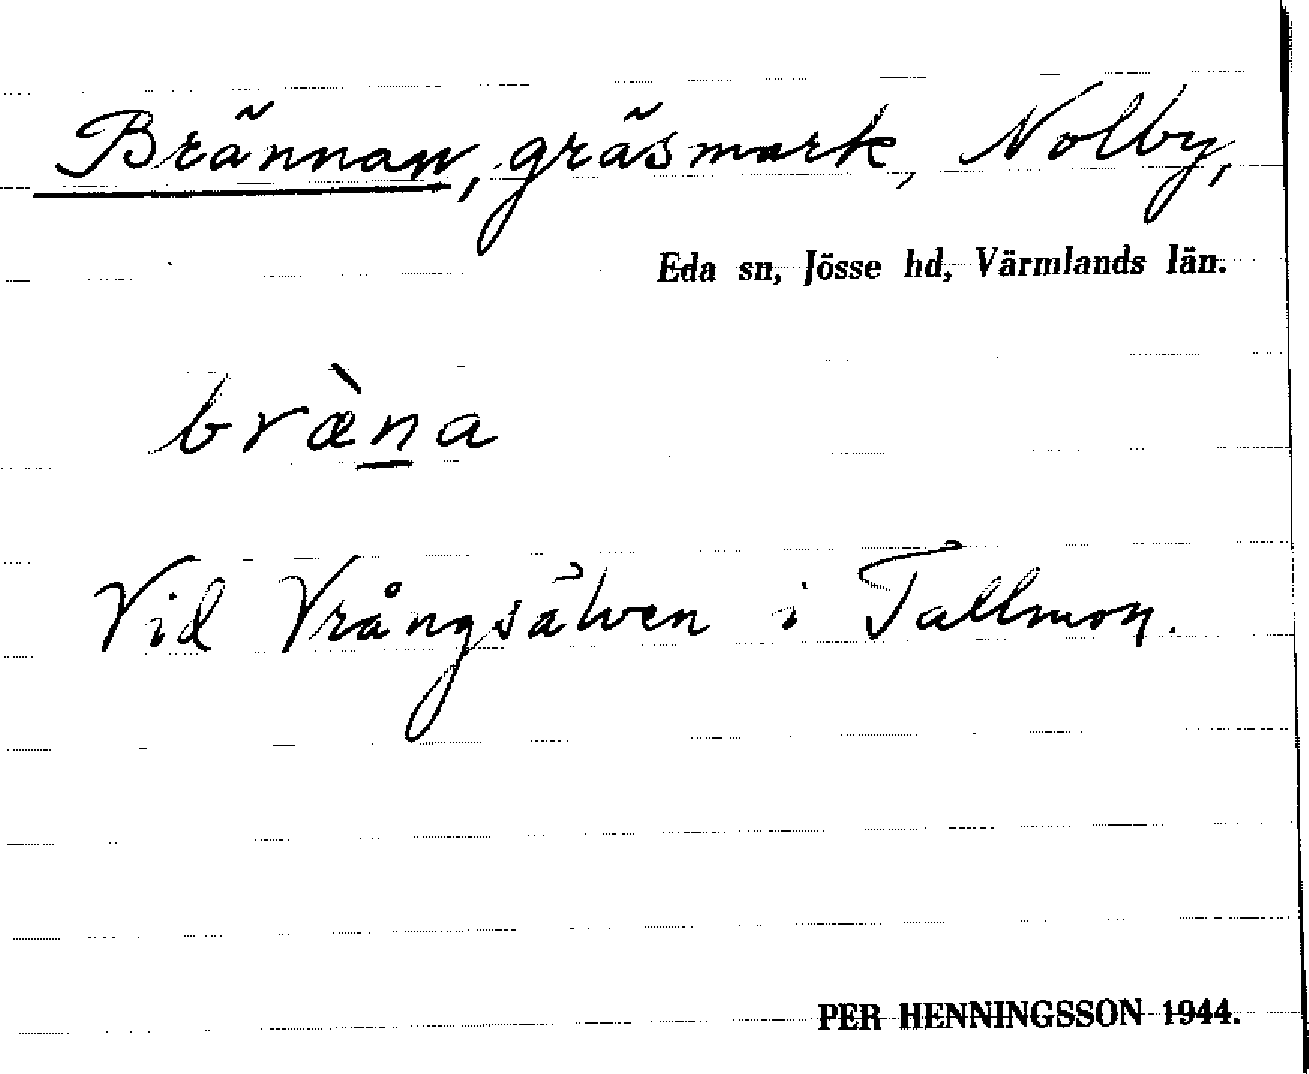 Brännan, gräsmark, Nolby,
Eda sn, Jösse hd, Värmlands län.
bræ̀n̲a
Vid Vrångsälven i Tallmon.
PER HENNINGSSON 1944.